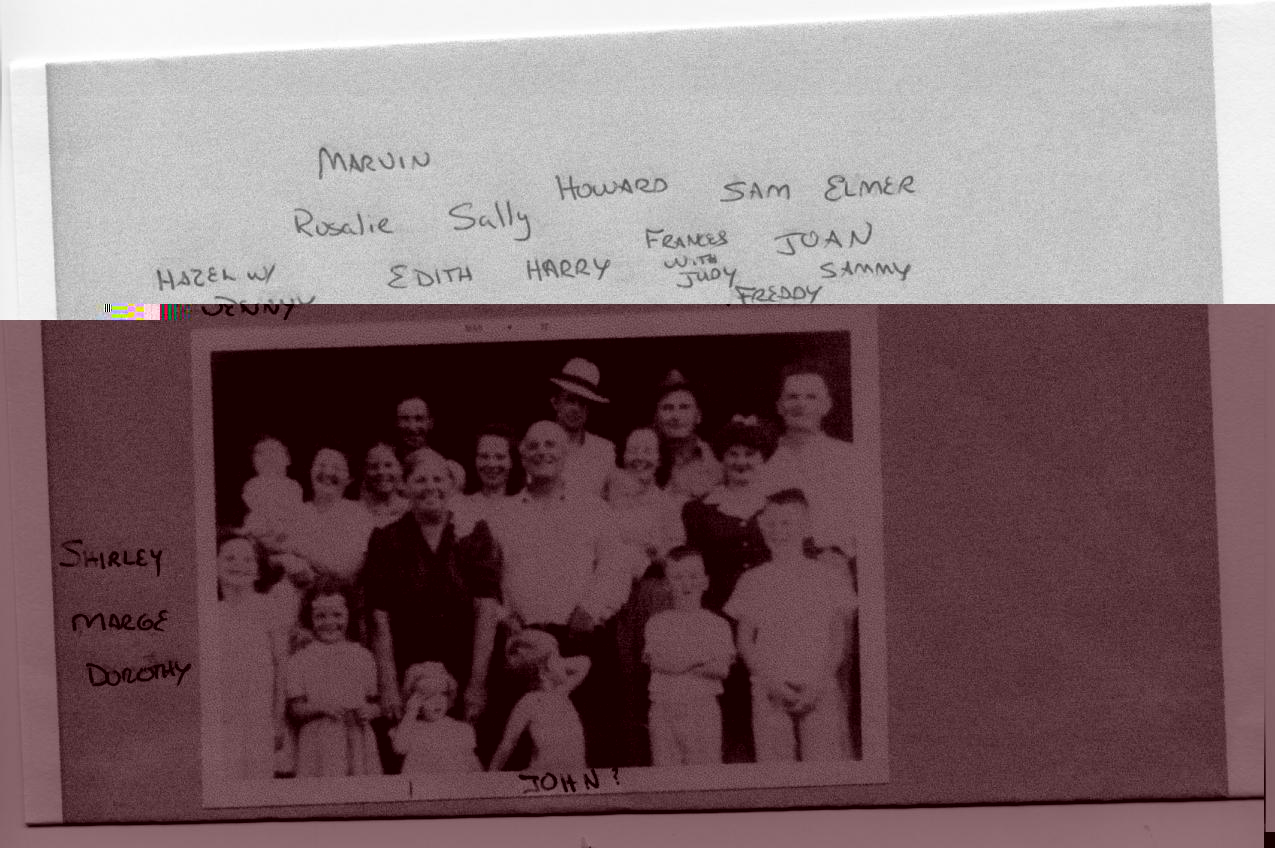 MARVIN
HOWARD SAM ELMER
Rosalie Sally
FRANCES JOAN
HAZEL W/ EDITH HARRY WITH SAMMY
JUDY
DENNY FREDDY
SHIRLEY
MARGE
DOROTHY
JOHN?